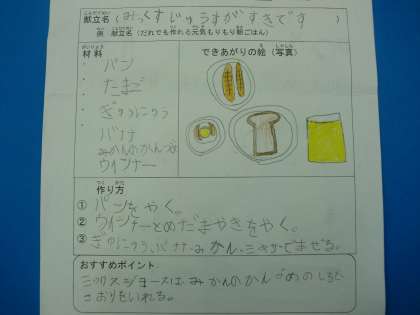 こんだてめい
献立名 (みっくすじゅうすがすきです)
例 献立名(だれでも作れる元気もりもり朝ごはん)
ざいりょう
材料
できあがりの絵(写真)
パン
たまご
ぎゅうにゅう
バナナ
みかんのかんづめ
ウインナー
つく かた
作り方
① パンをやく。
② ウインナーとめだまやきをやく。
③ ぎゅうにゅう、バナナ、みかん、ミキサーでまぜる。
おすすめポイント
ミックスジュースは、みかんのかんづめのしると
こおりをいれる。